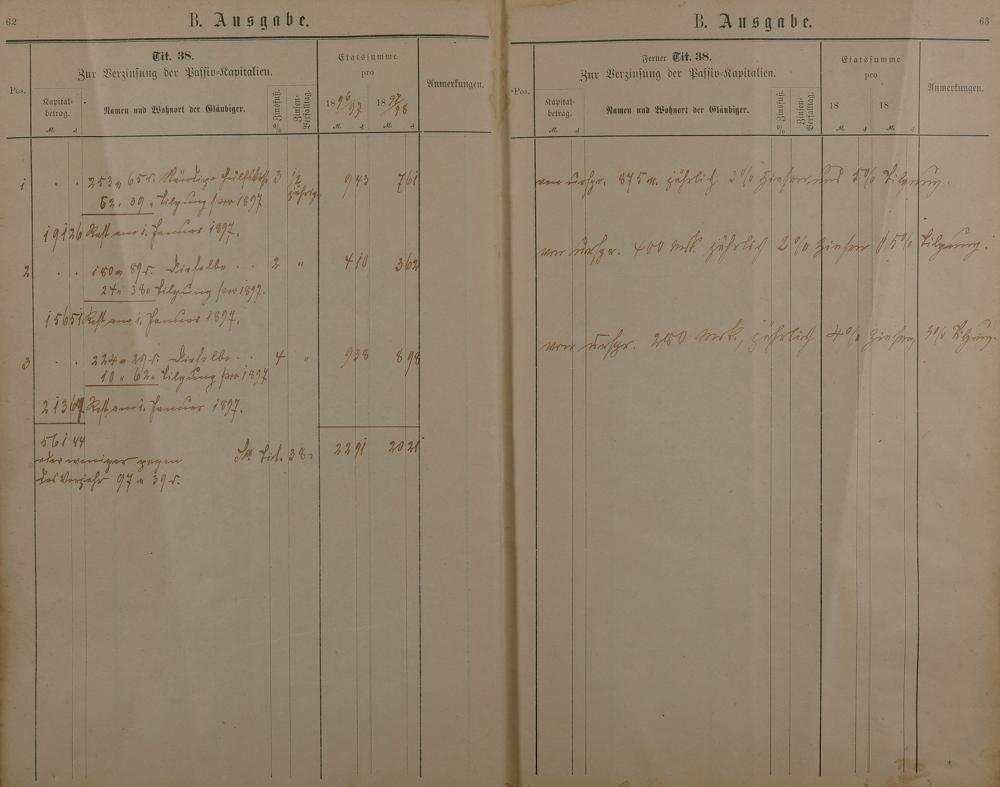 62
B. Ausgabe.
Tit. 38.
Zur Verzinsung der Passiv-Kapitalien.
Etatssumme
pro
Pos.
Kapital-
betrag.
Namen und Wohnort der Gläubiger.
% Zinsfuß.
Zinsen-
Verfalltag.
18 96/97
18 97/98
Anmerkungen.
M. ₰ M. ₰ M. ₰
1 . . 253 M 65 ₰. Hülfskasse 3 1/2 jährig 9 43 7 61
62 . 39 . Tilgung pro 1897
191 26 Rest am 1. Januar 1897.
2 . . 180 M 89 ₰. Dieselbe . . 2 " 4 10 3 62
24 . 38 . Tilgung pro 1897.
156 51 Rest am 1. Januar 1897.
3 . . 224 M 29 ₰. Dieselbe . . 4 " 9 38 8 98
10 . 62 . Tilgung pro 1897
213 67 Rest am 1. Januar 1897.
561 44
oder weniger gegen Sa. Tit. 38. 22 91 20 21
das Vorjahr 97 M 39 ₰.
63
B. Ausgabe.
Ferner Tit. 38.
Zur Verzinsung der Passiv-Kapitalien.
Etatssumme
pro
Pos.
Kapital-
betrag.
Namen und Wohnort der Gläubiger.
% Zinsfuß.
Zinsen-
Verfalltag.
18
18
Anmerkungen.
M. ₰ M. ₰ M. ₰
von urspr. 875 M. jährlich 3% Zinsen und 5% Tilgung.
von urspr. 400 Mk jährlich 2% Zinsen 5% Tilgung.
von urspr. 280 Mrk., jährlich 4% Zinsen, 3% Tilgung.